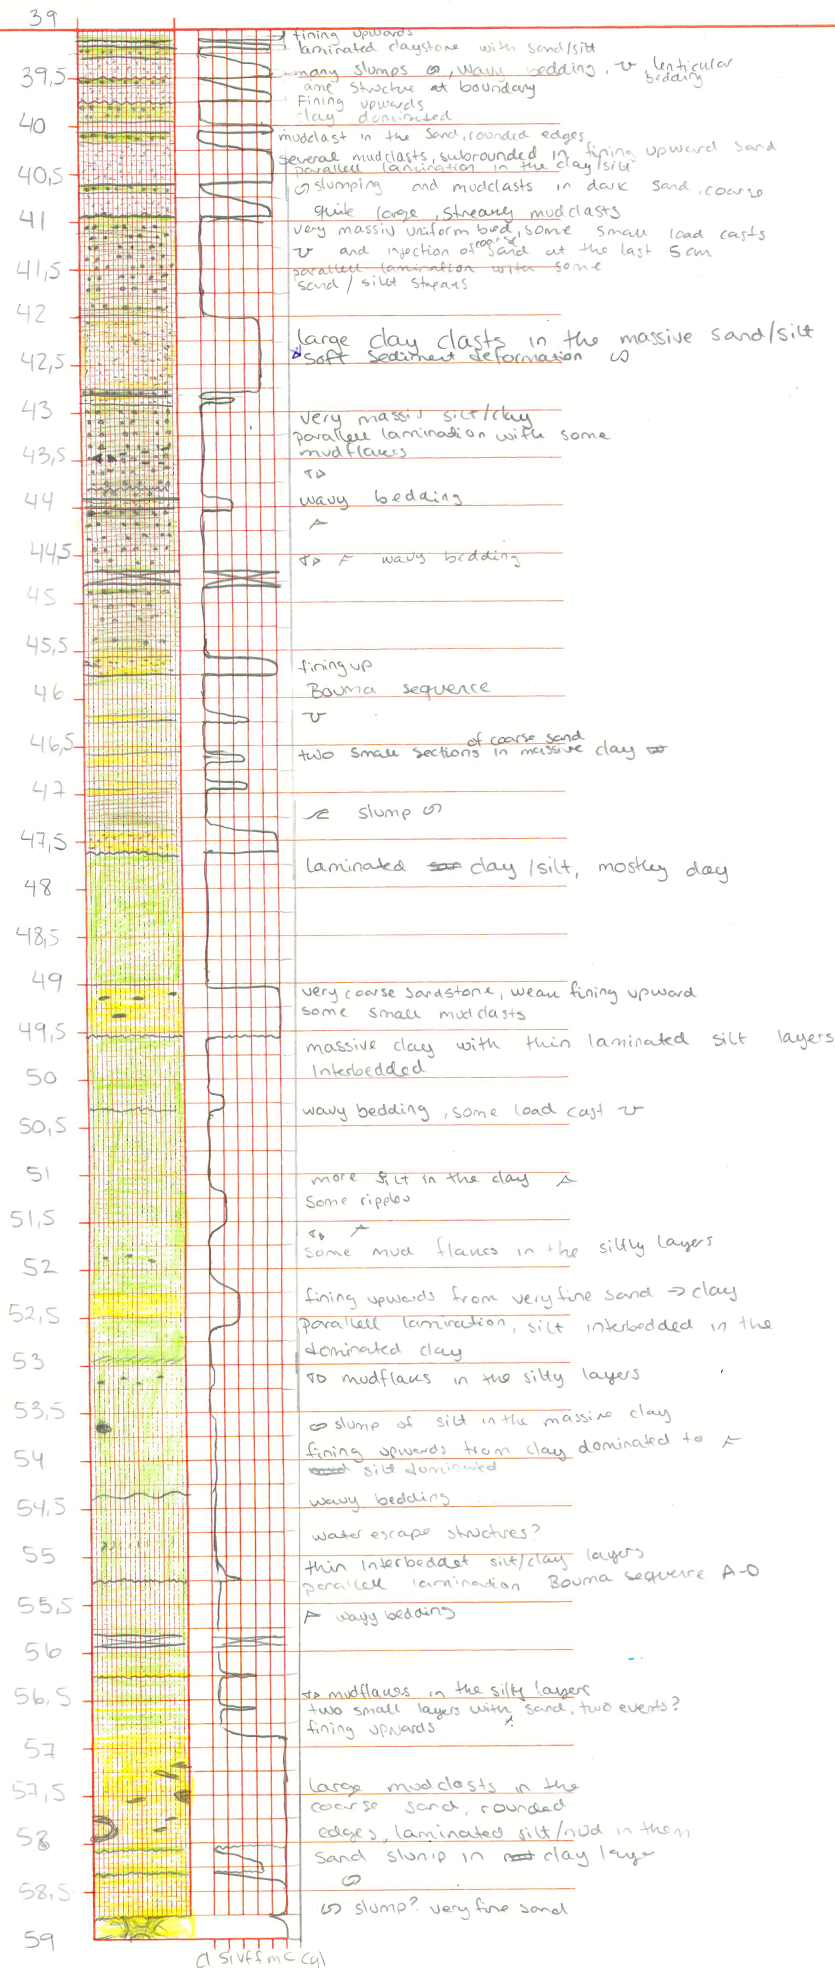 39
fining upwards
laminated claystone with sand/silt
39,5
many slumps, wavy bedding, lenticular
bedding
structure at boundary
Fining upwards
clay dominated
40
mudclast in the sand, rounded edges
several mudclasts, subrounded in fining upward sand
parallell lamination in the clay/silt
40,5
slumping and mudclasts in dark sand, coarse
quite large, streaky mudclasts
41
very massiv uniform bed, some small load casts
and injection of coarse sand at the last 5cm
41,5
parallell lamination with some
sand / silt streaks
42
large clay clasts in the massive sand/silt
42,5
soft sediment deformation
43
very massiv silt/clay
parallell lamination with some
43,5
mudflakes
44
wavy bedding
44,5
wavy bedding
45
45,5
fining up
46
Bouma sequence
46,5
of coarse sand
two small sections in massive clay
47
slump
47,5
laminated clay /silt, mostley clay
48
48,5
49
very coarse sandstone, weak fining upward
49,5
some small mudclasts
massive clay with thin laminated silt layers
50
Interbedded
50,5
wavy bedding, some load cast
51
more silt in the clay
Some ripples
51,5
some mud flakes in the siltly layers
52
fining upwards from very fine sand → clay
52,5
parallell lamination, silt interbedded in the
dominated clay
53
mudflaks in the silty layers
53,5
slump of silt in the massive clay
fining upwards from clay dominated to
54
silt dominated
54,5
wavy bedding
water escape structures?
55
thin Interbeddet silt/clay layers
parallell lamination Bouma sequence A-D
55,5
wavy bedding
56
56,5
mudflakes in the silty layers
two small layers with sand, two events?
fining upwards
57
57,5
Large mudclasts in the
coarse sand, rounded
58
edges, laminated silt/mud in them
sand slump in clay layer
58,5
slump? very fine sand
59
cl si vf f m c cgl